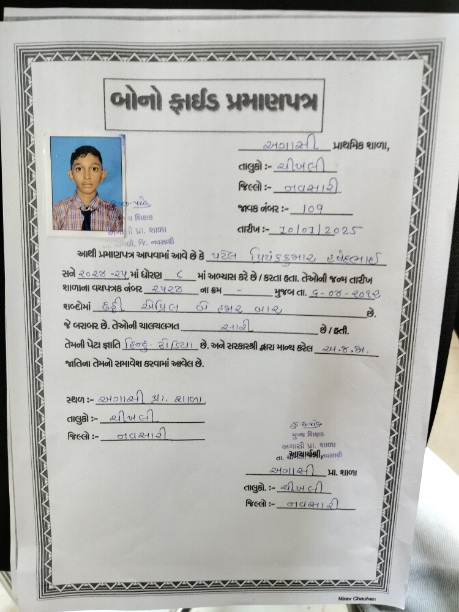 બોનો ફાઈડ પ્રમાણપત્ર
અગાસી પ્રાથમિક શાળા,
તાલુકો :- ચીખલી
જિલ્લો :- નવસારી
જાવક નંબર :- 109
તારીખ :- 10/07/2025
આથી પ્રમાણપત્ર આપવામાં આવે છે કે પટેલ
સને ૨૦૨૪-૨૫ માં ધોરણ ૮ માં અભ્યાસ કરે છે / કરતા હતા. તેઓની જન્મ તારીખ
શાળાના વયપત્રક નંબર ૨૫૨૪ ના ક્રમ - મુજબ તા. ૬-૦૪-૨૦૧૨
શબ્દોમાં છઠ્ઠી એપ્રિલ બે હજાર બાર છે.
જે બરાબર છે. તેઓની ચાલચલગત સારી છે / હતી.
તેમની પેટા જ્ઞાતિ હિન્દુ- ઘોડિયા છે. અને સરકારશ્રી દ્વારા માન્ય કરેલ અ.જ.જા.
જાતિના તેમનો સમાવેશ કરવામાં આવેલ છે.
સ્થળ :- અગાસી પ્રા. શાળા
તાલુકો :- ચીખલી
જિલ્લો :- નવસારી
મુખ્ય શિક્ષક
અગાસી પ્રા. શાળા
આચાર્યશ્રી,
અગાસી પ્રા. શાળા
તાલુકો. :- ચીખલી
જિલ્લો :- નવસારી